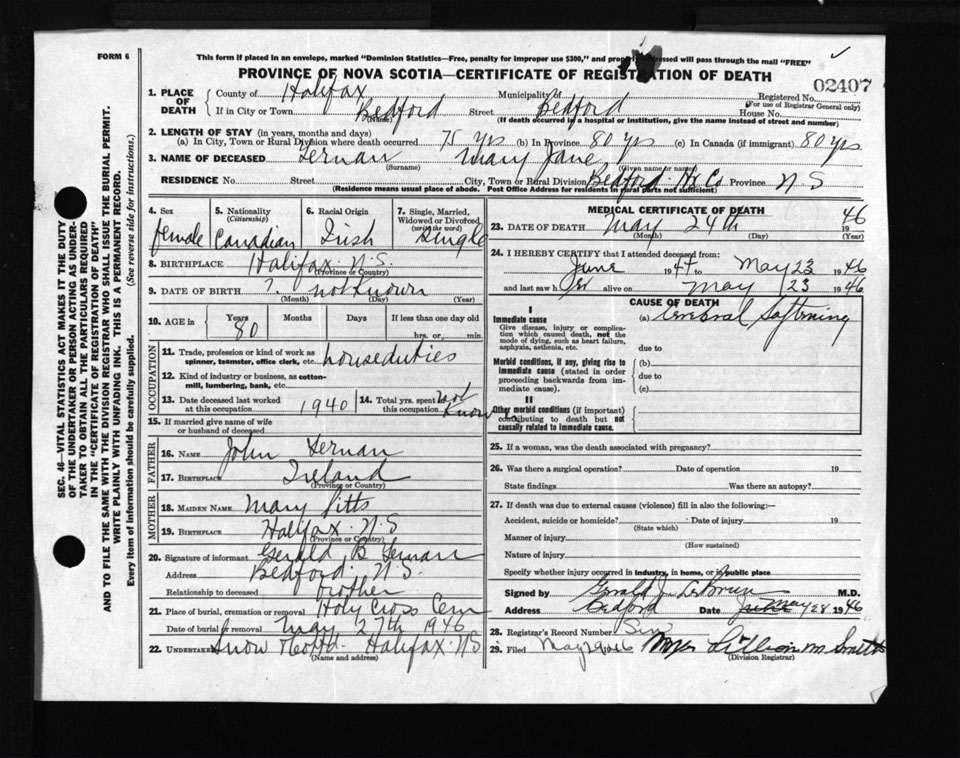 FORM 6
This form if placed in an envelope, marked "Dominion Statistics—Free, penalty for improper use $300," and addressed will pass through the mail "FREE"
PROVINCE OF NOVA SCOTIA—CERTIFICATE OF REGISTRATION OF DEATH
02407
1. PLACE OF DEATH
County of Halifax Municipality of Bedford Registered No.
(For use of Registrar General only)
If in City or Town Bedford Street House No.
(Name) (If death occurred in a hospital or institution, give the name instead of street and number)
2. LENGTH OF STAY (in years, months and days)
(a) In City, Town or Rural Division where death occurred 75 yrs (b) In Province 80 yrs (c) In Canada (if immigrant) 80 yrs
3. NAME OF DECEASED Mary Jane
(Surname) (Given name or names)
RESIDENCE No. Street City, Town or Rural Division Bedford Hx Co Province N S
(Residence means usual place of abode. Post Office Address for residents in rural parts not sufficient)
4. Sex female
5. Nationality (Citizenship) Canadian
6. Racial Origin Irish
7. Single, Married, Widowed or Divorced (write the word) Single
8. BIRTHPLACE Halifax N.S.
(Province or Country)
9. DATE OF BIRTH ? not known
(Month) (Day) (Year)
10. AGE in Years 80 Months Days If less than one day old hrs. or min.
OCCUPATION
11. Trade, profession or kind of work as spinner, teamster, office clerk, etc. houseduties
12. Kind of industry or business, as cotton-mill, lumbering, bank, etc.
13. Date deceased last worked at this occupation 1940
14. Total yrs. spent in this occupation not know
15. If married give name of wife or husband of deceased
FATHER
16. NAME John
17. BIRTHPLACE Ireland
(Province or Country)
MOTHER
18. MAIDEN NAME Mary Pitts
19. BIRTHPLACE Halifax N.S
(Province or Country)
20. Signature of informant Gerald B
Address Bedford. N.S.
Relationship to deceased brother
21. Place of burial, cremation or removal Holy Cross Cem
Date of burial or removal May 27th 1946
22. UNDERTAKER Snow & Co Ltd. Halifax. N.S
(Name and address)
MEDICAL CERTIFICATE OF DEATH
23. DATE OF DEATH May 24th 1946
(Month) (Day) (Year)
24. I HEREBY CERTIFY that I attended deceased from:
June 194 to May 23 1946
and last saw her alive on May 23 1946
CAUSE OF DEATH
I
Immediate cause
Give disease, injury or complication which caused death, not the mode of dying, such as heart failure, asphyxia, asthenia, etc.
(a) Cerebral Softening
due to
Morbid conditions, if any, giving rise to immediate cause (stated in order proceeding backwards from immediate cause).
(b)
due to
(c)
II
Other morbid conditions (if important) contributing to death but not causally related to immediate cause.
25. If a woman, was the death associated with pregnancy?
26. Was there a surgical operation? Date of operation 19
State findings Was there an autopsy?
27. If death was due to external causes (violence) fill in also the following:—
Accident, suicide or homicide? Date of injury 19
(State which)
Manner of injury
(How sustained)
Nature of injury
Specify whether injury occurred in industry, in home, or in public place
Signed by Gerald J. LeBrun M.D.
Address Bedford Date May 28 1946
28. Registrar's Record Number Six
29. Filed May 29 1946 Lillian M Smith
(Division Registrar)
SEC. 46—VITAL STATISTICS ACT MAKES IT THE DUTY
OF THE UNDERTAKER OR PERSON ACTING AS UNDER-
TAKER TO OBTAIN ALL THE PARTICULARS REQUIRED
IN THE "CERTIFICATE OF REGISTRATION OF DEATH"
AND TO FILE THE SAME WITH THE DIVISION REGISTRAR WHO SHALL ISSUE THE BURIAL PERMIT.
WRITE PLAINLY WITH UNFADING INK. THIS IS A PERMANENT RECORD.
Every item of information should be carefully supplied. (See reverse side for instructions.)